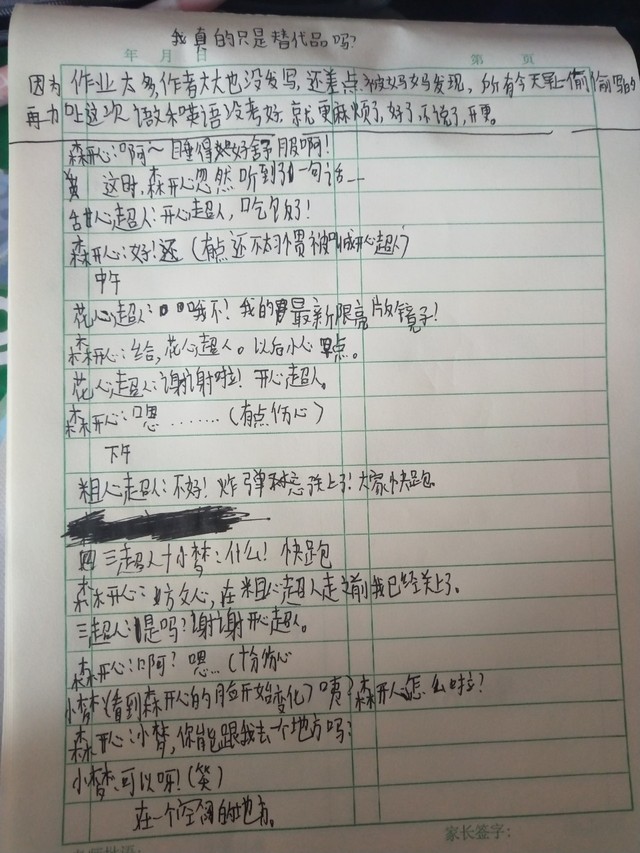 我真的只是替代品吗?
年 月 日
第 页
因为作业太多,作者太太也没发写,还差点被妈妈发现,所有今天早上偷偷写的
再加上这次语文和英语没考好就更麻烦了,好了,不说了,开更。
森开心:啊~睡得好舒服啊!
这时,森开心忽然听到了一句话_
甜心超人:开心超人,吃包了!
森开心:好!还(有点还不太习惯被叫成开心超人)
中午
花心超人:哦不!我的最新限亮版镜子!
森开心:给,花心超人。以后小心点。
花心超人:谢谢啦!开心超人。
森开心:嗯........(有点伤心)
下午
粗心超人:不好!炸弹忘关上了!大家快跑
三超人+小梦:什么!快跑
森开心:放心,在粗心超人走之前我已经关上了。
三超人:是吗?谢谢开心超人。
森开心:啊?嗯...(十分伤心
小梦(看到森开人的脸开始变化)咦?森开人怎么啦?
森开心:小梦,你能跟我去一个地方吗?
小梦:可以呀!(笑)
在一个空阔的地方。
家长签字: